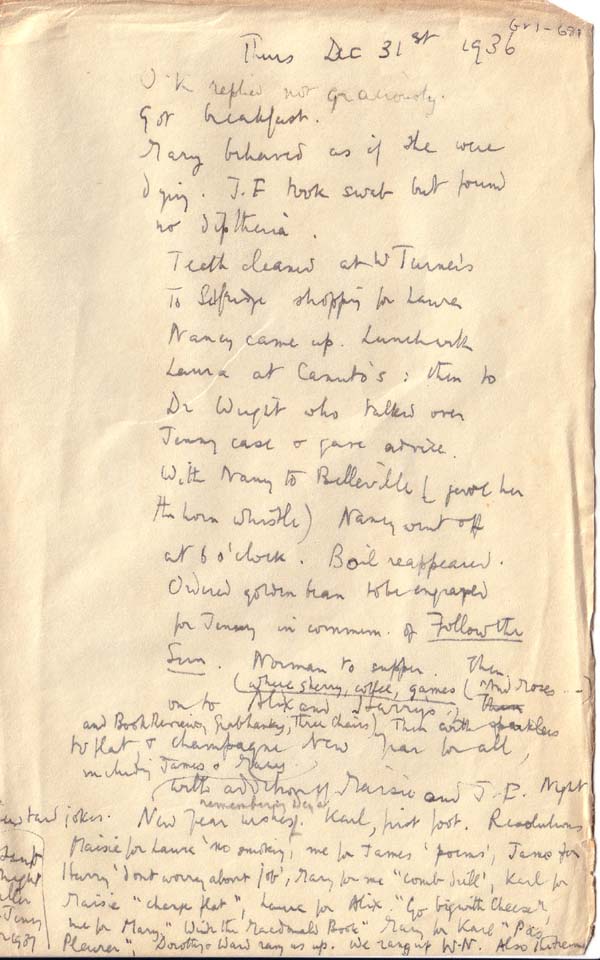 Thurs Dec 31st 1936
O.K replied not graciously.
Got breakfast.
Mary behaved as if she were
dying. J.E took swab but found
no diptheria.
Teeth cleaned at W Turner's
To Selfridge shopping for Laura
Nancy came up. Lunch with
Laura at Canuto's : then to
Dr Wright who talked over
Jenny case & gave advice.
With Nancy to Belleville (gave her
the horn whistle) Nancy went off
at 6 o'clock. Boil reappeared.
Ordered golden bean to be engraved
for Jenny in commem. of Follow the
Sun. Norman to supper. Then
(where sherry, coffee, games (Wind Roses
on to Alix and Harry's ; Then
and Book Reviewing, Grabhanky, Three Chairs) Then with
to flat & champagne New Year for all,
including James & Mary.
with addition of Maisie and J.E. Night
remembering
jokes. New Year wishes. Karl, first foot. Resolutions
Maisie for Laura 'no smoking', me for James 'poems', James for
night
Harry 'dont worry about job', Mary for me "comb drill", Karl for
Jenny
Maisie "change flat", Laura for Alix "Go big with Cheese",
1937
me for Mary, "With the Macdonald Book" Mary for Karl "Pas
Pleurer", Dorothy & Ward rang us up. We rang up W-N. Also